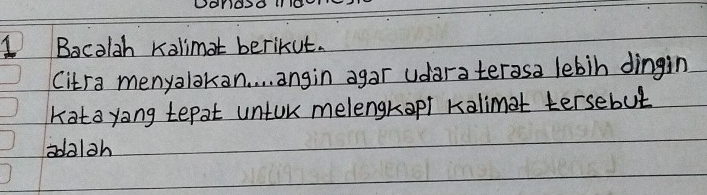 1 Bacalah Kalimat berikut.
Citra menyalakan....angin agar udara terasa lebih dingin
Kata yang tepat untuk melengkapi kalimat tersebut
adalah